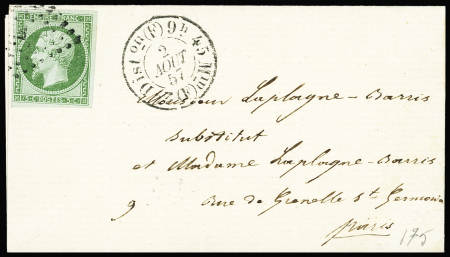 EMPIRE FRANC.
5·C·POSTES·5·C·
Diston (F) 9h 45 M
2
AOUT
57
Monsieur Laplagne-Barris
Substitut
et Madame Laplagne-Barris
9 Rue de Grenelle St. Germain
Paris
175